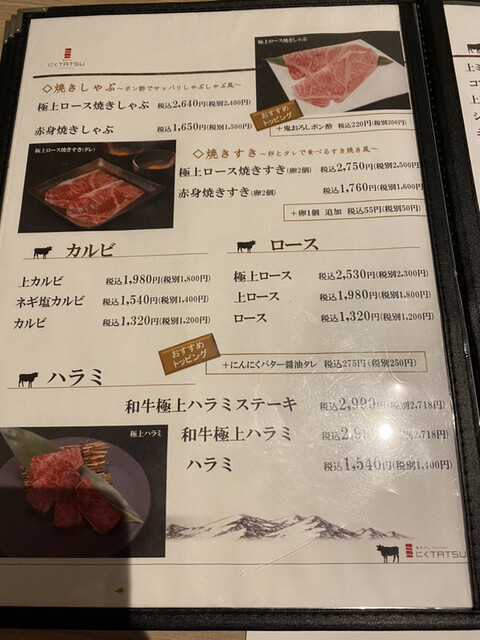 にくTATSU
◇焼きしゃぶ ～ポン酢でサッパリしゃぶしゃぶ風～
極上ロース焼きしゃぶ 税込2,640円(税別2,400円)
赤身焼きしゃぶ 税込1,650円(税別1,500円)
極上ロース焼きしゃぶ
おすすめ
トッピング
+鬼おろしポン酢 税込220円(税別200円)
極上ロース焼きすき(タレ)
◇焼きすき ～卵とタレで食べるすき焼き風～
極上ロース焼きすき(卵2個) 税込2,750円(税別2,500円
赤身焼きすき(卵2個) 税込1,760円(税別1,600円
+卵1個 追加 税込55円(税別50円)
カルビ
上カルビ 税込1,980円(税別1,800円)
ネギ塩カルビ 税込1,540円(税別1,400円)
カルビ 税込1,320円(税別1,200円)
ロース
極上ロース 税込2,530円(税別2,300円)
上ロース 税込1,980円(税別1,800円)
ロース 税込1,320円(税別1,200円)
おすすめ
トッピング
+にんにくバター醤油タレ 税込275円(税別250円)
ハラミ
和牛極上ハラミステーキ 税込2,990円(税別2,718円)
和牛極上ハラミ 税込2,9 税別2,718円)
ハラミ 税込1,540円(税別1,400円)
極上ハラミ
にくTATSU